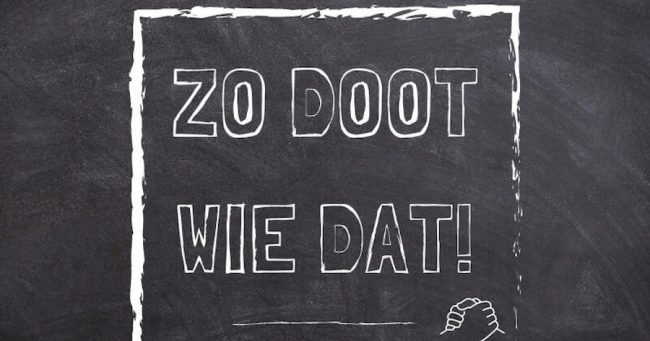 ZO DOOT
WIE DAT!